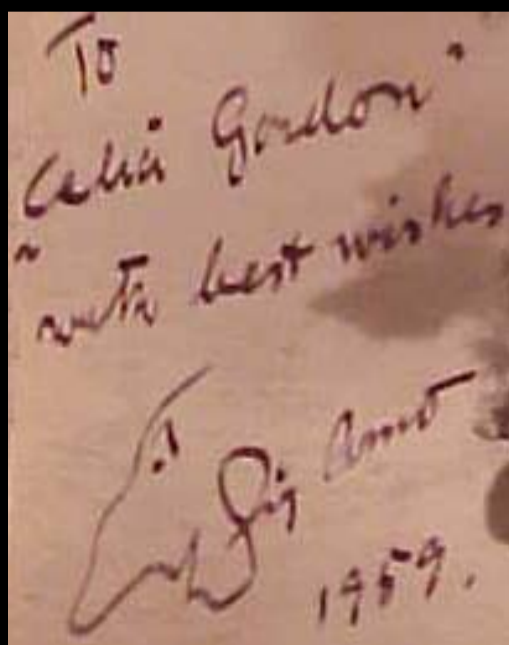 To
"Celia Gordon"
with best wishes
1959.